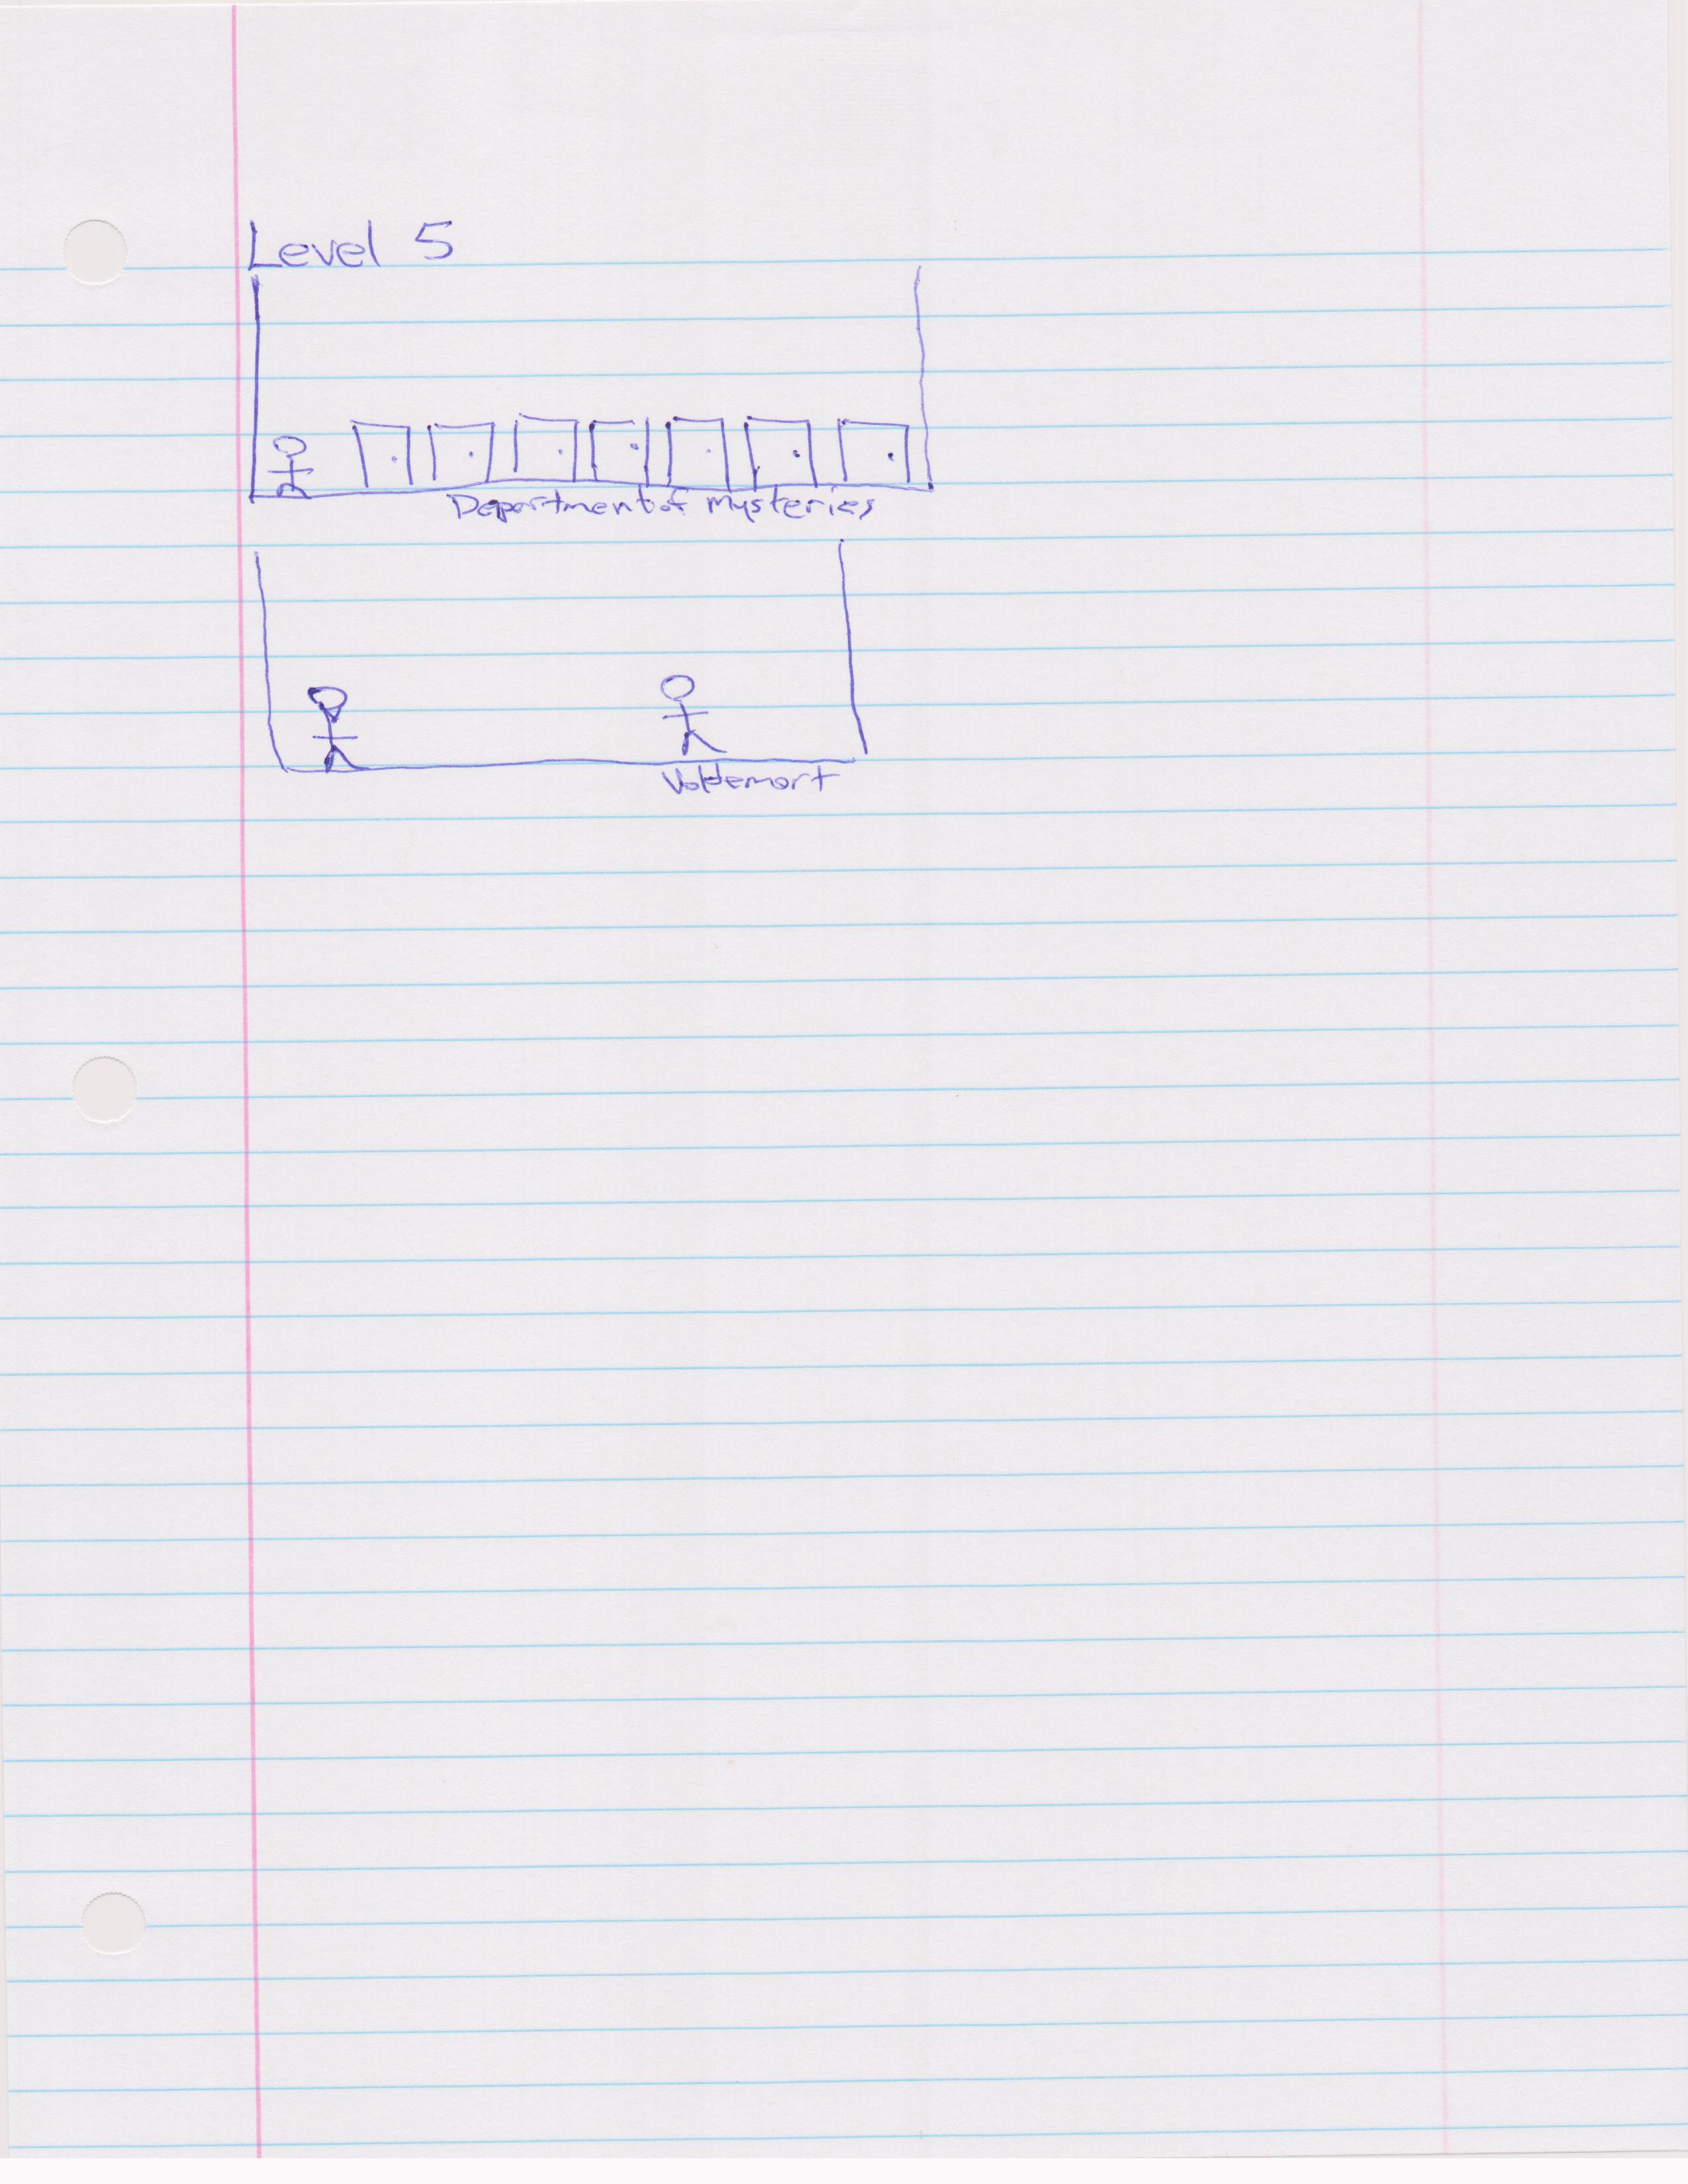 Level 5
Department of Mysteries
Voldemort